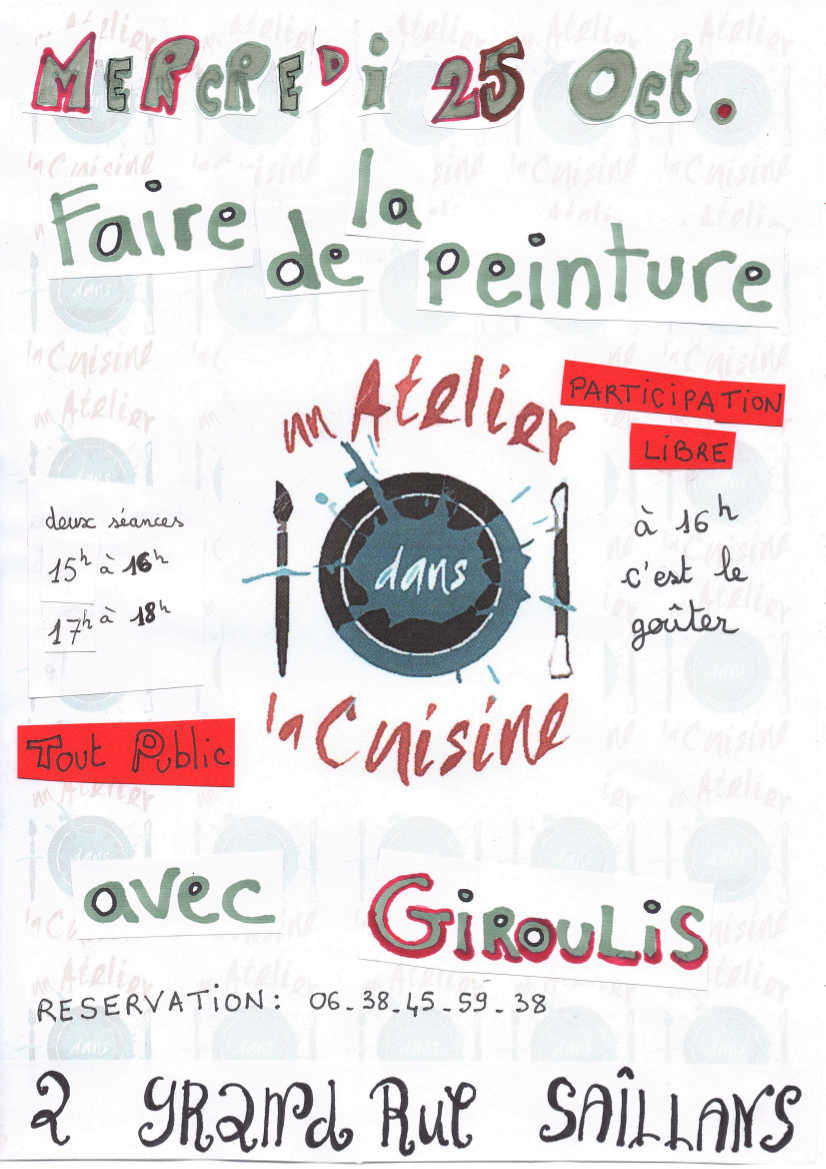 MERCREDi 25 Oct.
Faire de la peinture
un Atelier
dans
la Cuisine
PARTiCiPATION
LiBRE
deux séances
15h à 16h
17h à 18h
à 16h
c'est le
goûter
Tout Public
avec GiROULiS
RESERVATiON: 06-38-45-59-38
2 GRand Rue SAÎLLANS